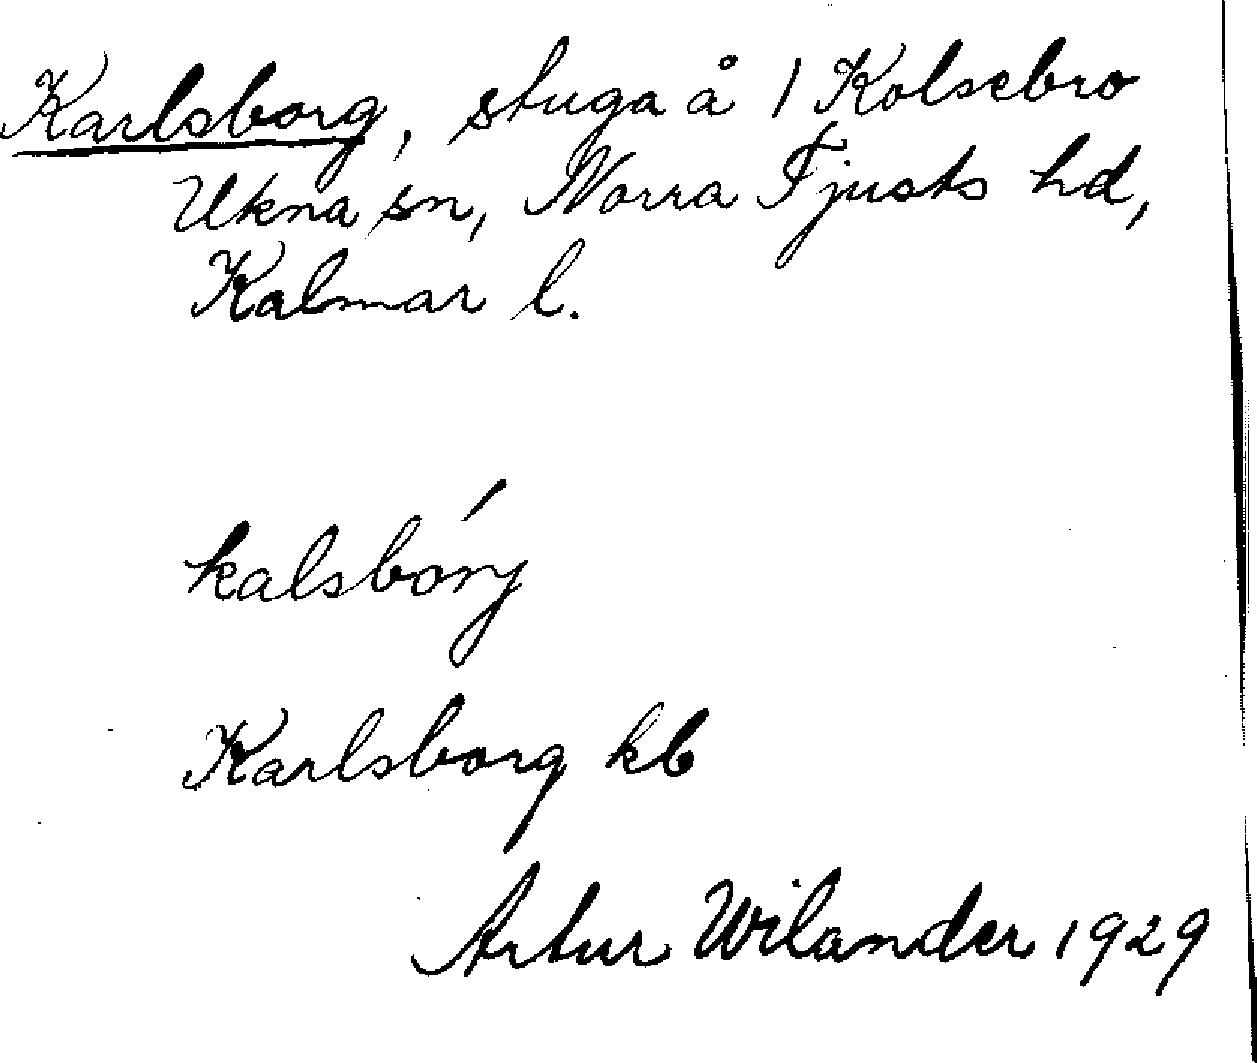 Karlsborg, stuga å 1 Kolsebro
Ukna sn, Norra Tjusts hd,
Kalmar l.
kalsbórj
Karlsborg kb
Artur Wilander 1929